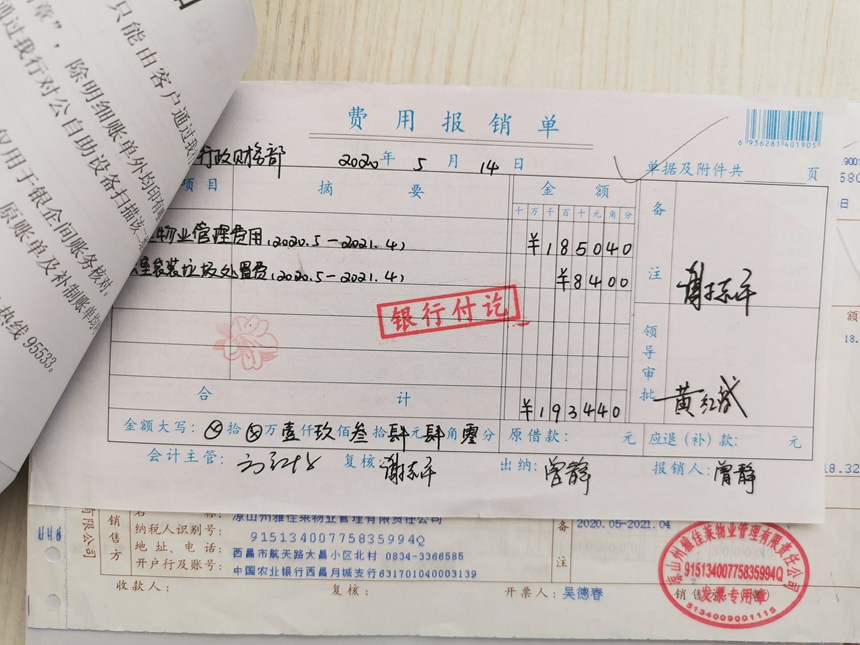 只能由客户通过我
章”，除明细账单外均印有
通过我行对公自助设备扫描该二
仅用于银企间账务核对，
原账单及补制账单均
热线 95533。
费用报销单
6 936281 401905
行政财务部 2020年 5月 14日 单据及附件共 页
项目 摘要 金额 备注
十万千百十元角分
物业管理费用(2020.5-2021.4) ¥185040
装垃圾处置费(2020.5-2021.4) ¥8400
谢志平
银行付讫
领导审批 黄红斌
合计 ¥193440
金额大写：⊗拾⊗万壹仟玖佰叁拾肆元肆角零分 原借款： 元 应退（补）款： 元
会计主管： 复核：谢志平 出纳：曾静 报销人：曾静
额
18.
18.32
有限公司
销售方
名 称：凉山州雅佳莱物业管理有限责任公司
纳税人识别号：91513400775835994Q
地址、电话：西昌市航天路大昌小区北村 0834-3366585
开户行及账号：中国农业银行西昌月城支行631701040003139
备注 2020.05-2021.04
收款人： 复核： 开票人：吴德春 销售
凉山州雅佳莱物业管理有限责任公司
91513400775835994Q
发票专用章
5134009001115